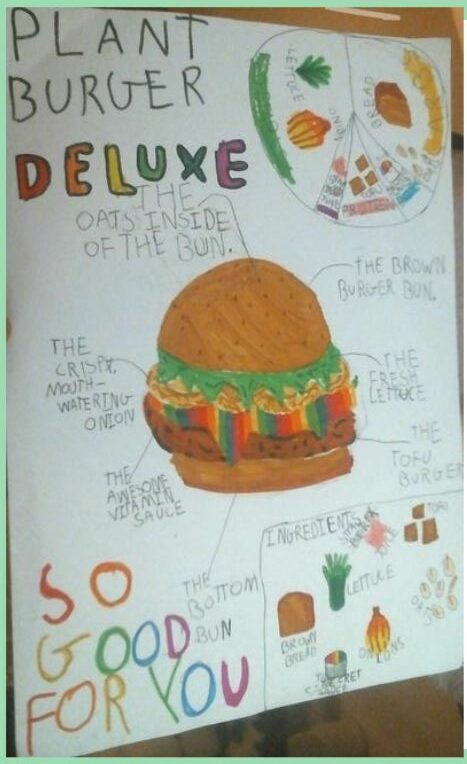 PLANT
BURGER
DELUXE
LETTUCE
ONION
BREAD
TOFU
PROTEIN
THE
OATS INSIDE
OF THE BUN.
THE BROWN
BURGER BUN.
THE
CRISPY,
MOUTH-
WATERING
ONION
THE
FRESH
LETTUCE
THE
TOFU
BURGER
THE
AWESOME
VITAMIN
SAUCE
THE
BOTTOM
BUN
SO
GOOD
FOR YOU
INGREDIENTS
TOFU
LETTUCE
OATS
BROWN
BREAD
ONIONS